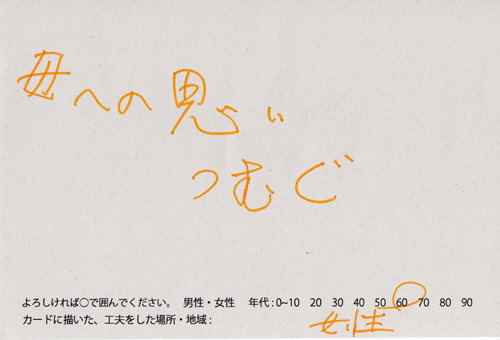 母への思い
つむぐ
よろしければ○で囲んでください。 男性・女性 年代:0~10 20 30 40 50 60 70 80 90
カードに描いた、工夫をした場所・地域:
女性